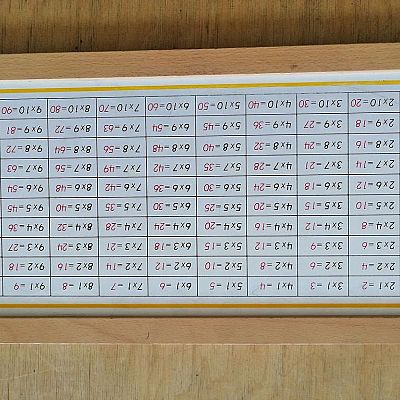 2x1=2 3x1=3 4x1=4 5x1=5 6x1=6 7x1=7 8x1=8 9x1=9
2x2=4 3x2=6 4x2=8 5x2=10 6x2=12 7x2=14 8x2=16 9x2=18
2x3=6 3x3=9 4x3=12 5x3=15 6x3=18 7x3=21 8x3=24 9x3=27
2x4=8 3x4=12 4x4=16 5x4=20 6x4=24 7x4=28 8x4=32 9x4=36
2x5=10 3x5=15 4x5=20 5x5=25 6x5=30 7x5=35 8x5=40 9x5=45
2x6=12 3x6=18 4x6=24 5x6=30 6x6=36 7x6=42 8x6=48 9x6=54
2x7=14 3x7=21 4x7=28 5x7=35 6x7=42 7x7=49 8x7=56 9x7=63
2x8=16 3x8=24 4x8=32 5x8=40 6x8=48 7x8=56 8x8=64 9x8=72
2x9=18 3x9=27 4x9=36 5x9=45 6x9=54 7x9=63 8x9=72 9x9=81
2x10=20 3x10=30 4x10=40 5x10=50 6x10=60 7x10=70 8x10=80 9x10=90